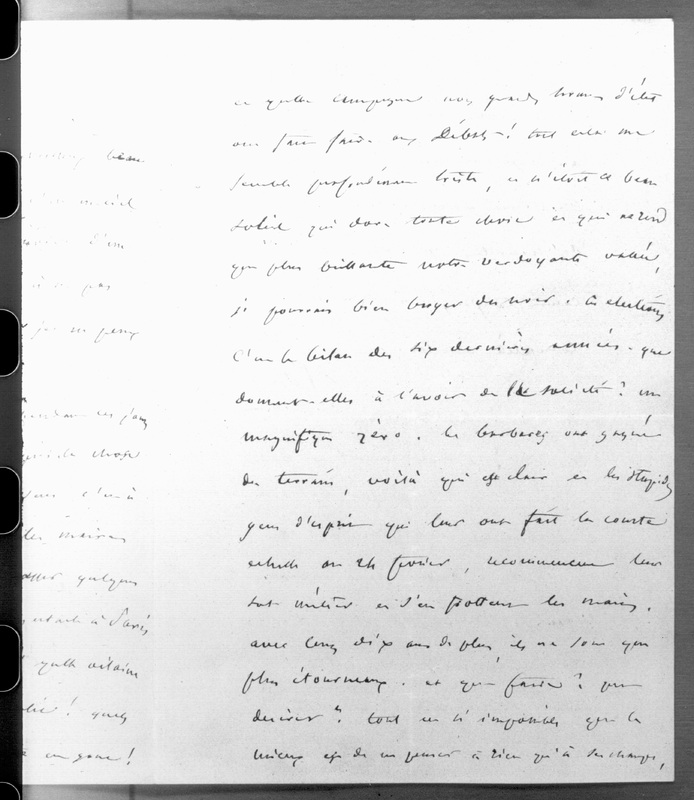 beau
d'un
pas
je ne peux
ces jours
chose
c'est à
les mains
quelques
à Paris
quelle vilaine
quels
en gare!
et quelle campagne nos grands hommes d'état
ont fait faire aux Débats! tout cela me
semble profondément triste, et n'était ce beau
soleil qui dore toute chose et qui ne rend
que plus brillante notre verdoyante vallée,
je pourrais bien broyer du noir. les élections
c'est le bilan des six dernières années. que
donnent-elles à l'avoir de la société? un
magnifique zéro. les barbares ont gagné
du terrain, voilà qui est clair et les stupides
gens d'esprit qui leur ont fait la courte
échelle au 24 février, recommencent leur
sot métier et s'en frottent les mains.
avec cinq dix ans de plus, ils ne sont que
plus étourneaux. et que faire? que
désirer? tout est si impossible que le
mieux est de ne penser à rien qu'à ses champs,